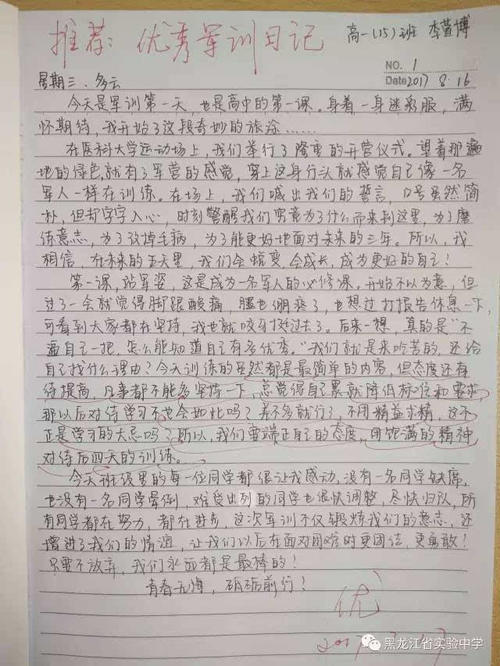 推荐：优秀军训日记
高一(15)班 李萱博
NO. 1
星期三、多云
Date 2017 8.16
今天是军训第一天，也是高中的第一课。身着一身迷彩服，满
怀期待，我开始了这段奇妙的旅途……
在医科大学运动场上，我们举行了隆重的开营仪式。望着那遍
地的绿色就有了军营的感觉，穿上这身行头就感觉自己像一名
军人一样在训练。在场上，我们喊出我们的誓言，口号虽然简
朴，但却字字入心，时刻警醒我们究竟为了什么而来到这里，为了磨
练意志，为了改掉毛病，为了能更好地面对未来的三年。所以，我
相信，在未来的五天里，我们会蜕变，会成长，成为更好的自己！
第一课，站军姿，这是成为一名军人的必修课。开始不以为意，但
过了一会就觉得脚跟酸痛，腿也绷疼了，也想过打报告休息一下，
可看到大家都在坚持，我也就咬牙挺过去了。后来一想，真的是“不
逼自己一把，怎么能知道自己有多优秀。”我们就是来吃苦的，还给
自己找什么理由？今天训练的虽然都是最简单的内容，但态度还有
待提高，凡事都不能多坚持一下，总觉得自己累就降低标位和要求
那以后对待学习不也会如此吗？差不多就行了，不用精益求精，这不
正是学习的大忌吗？所以，我们要端正自己的态度，用饱满的精神
对待后四天的训练。
今天班级里的每一位同学都很让我感动，没有一名同学缺席，
也没有一名同学晕倒，难受出列的同学也很快调整，尽快归队，所
有同学都在努力，都在进步，这次军训不仅锻炼我们的意志，还
增进了我们的情谊，让我们以后在面对困难时更团结，更勇敢！
只要不放弃，我们永远都是最棒的！
青春无悔，砥砺前行！
优
黑龙江省实验中学